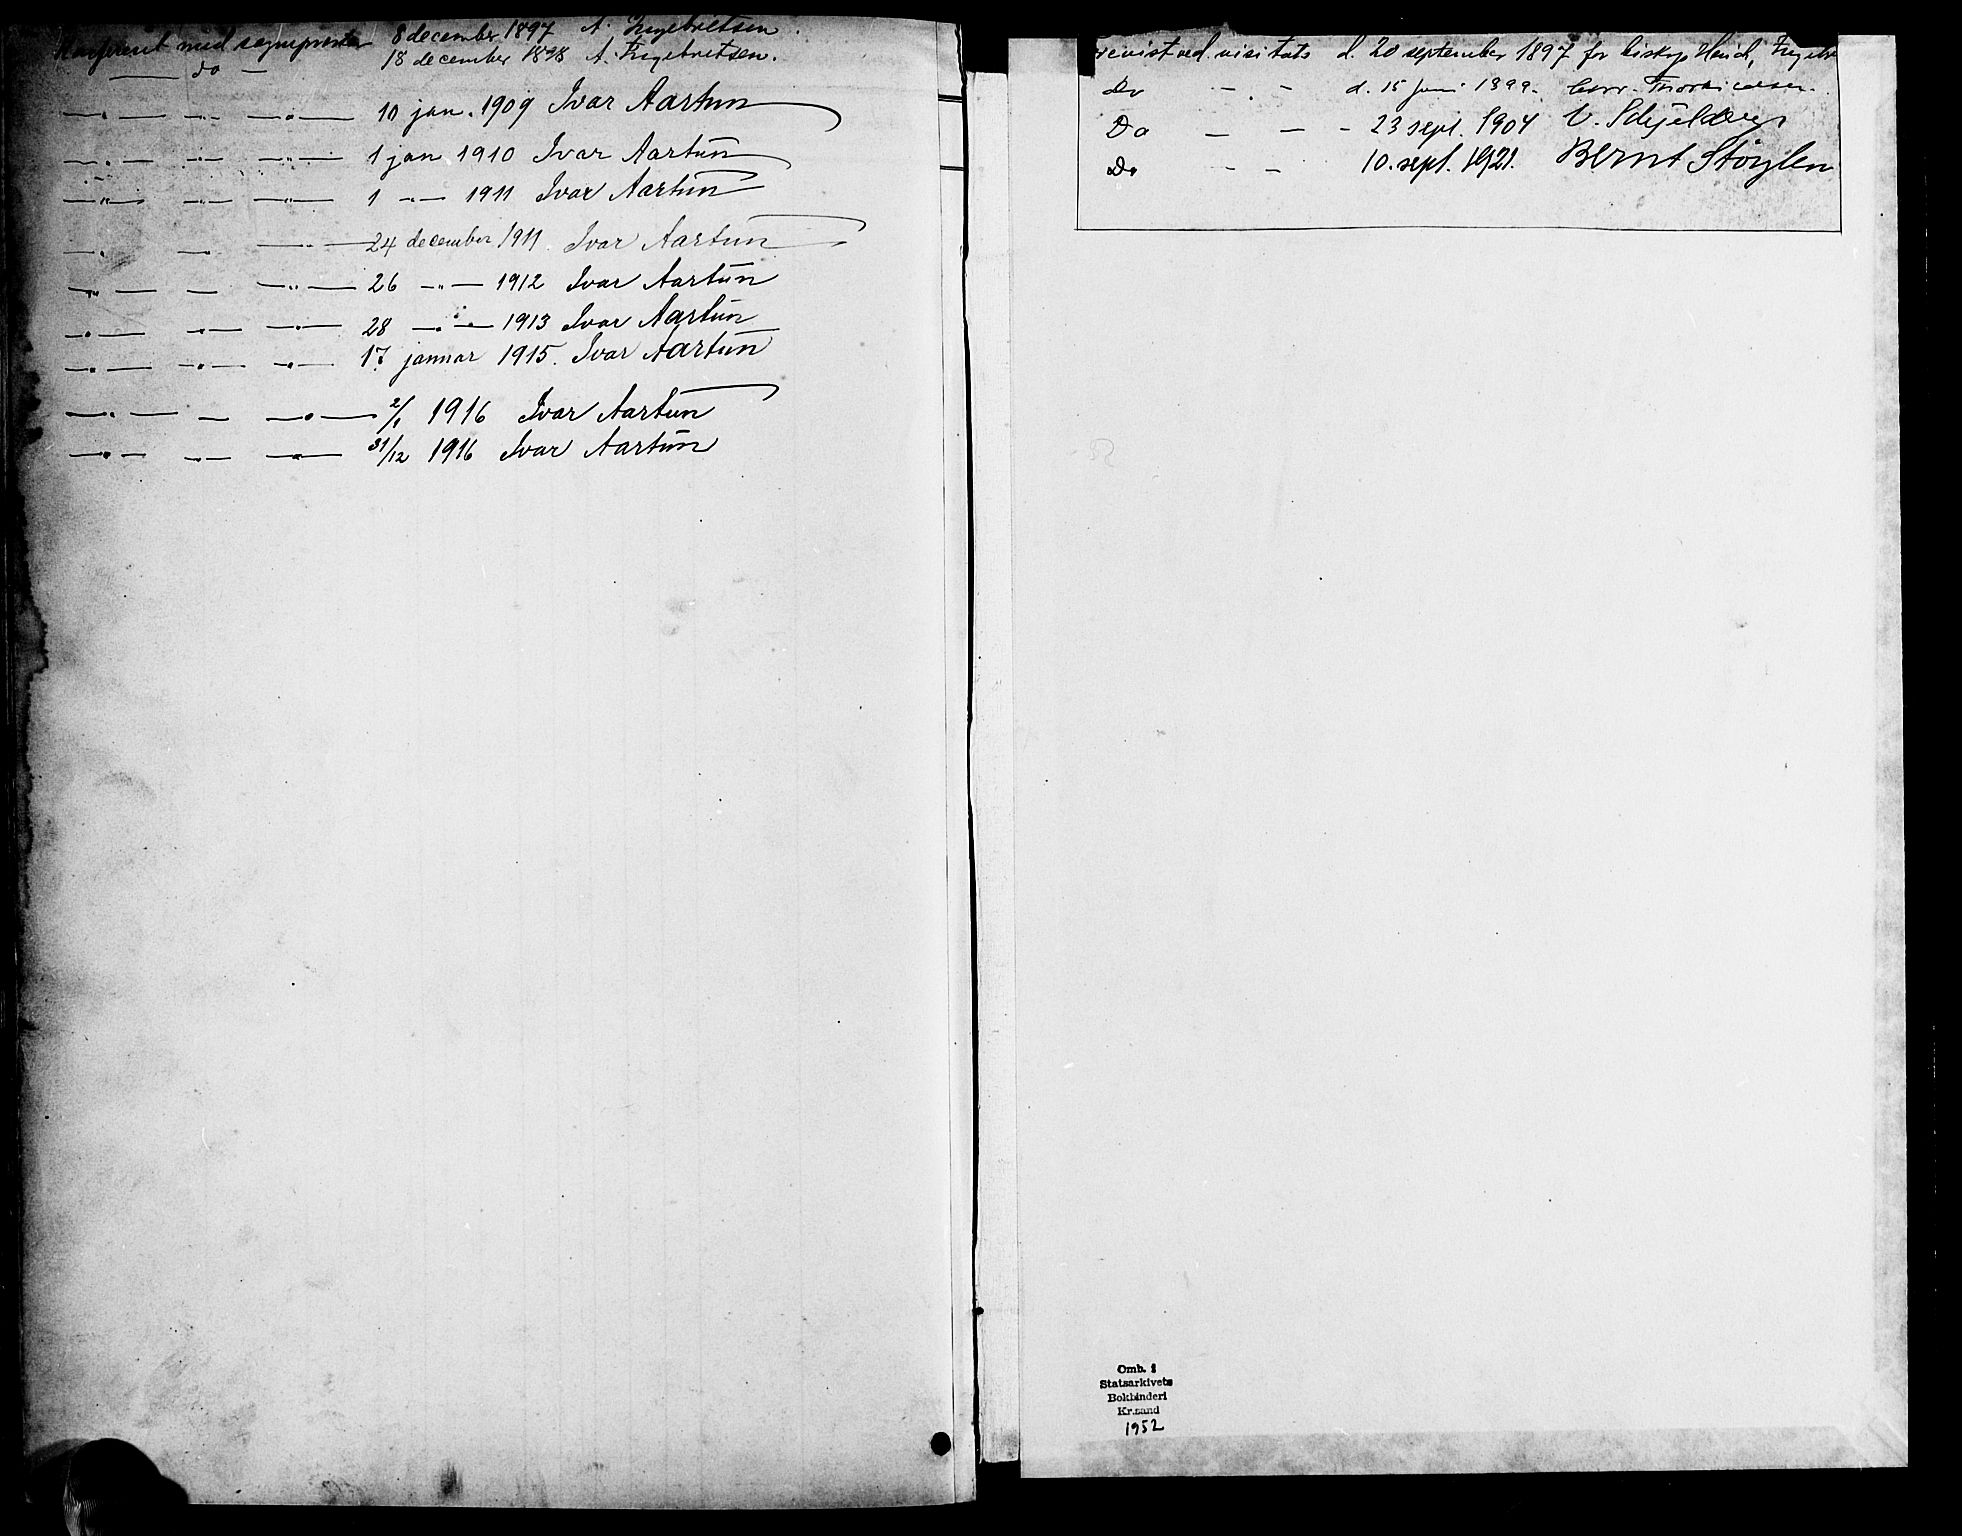 Konferert med sogneprestn 8 december 1897 A. Ingebretsen.
— do — 18 december 1898 A. Ingebretsen.
— " — — " — — " — 10 jan. 1909 Ivar Aartun
— " — — " — — " — 1 jan 1910 Ivar Aartun
— " — — " — — " — 1 — " — 1911 Ivar Aartun
— " — — " — — " — 24 december 1911. Ivar Aartun
— " — — — " — 26 — " — 1912 Ivar Aartun
— " — — " — — " — 28 — " — 1913 Ivar Aartun
— " — — " — — " — 17 januar 1915. Ivar Aartun
— " — — — " — 2/1 1916 Ivar Aartun
— " — — " — — " — 31/12 1916 Ivar Aartun
revist ved visitats d. 20 september 1897 for biskop Heuch,
Do — " — d. 15 juni 1899.
Do — — - 23 sept. 1904 V. Schjelderup
Do - - 10. sept. 1921. Bernt Støylen
Omb. i
Statsarkivets
Bokbinderi
Kr.sand
1952